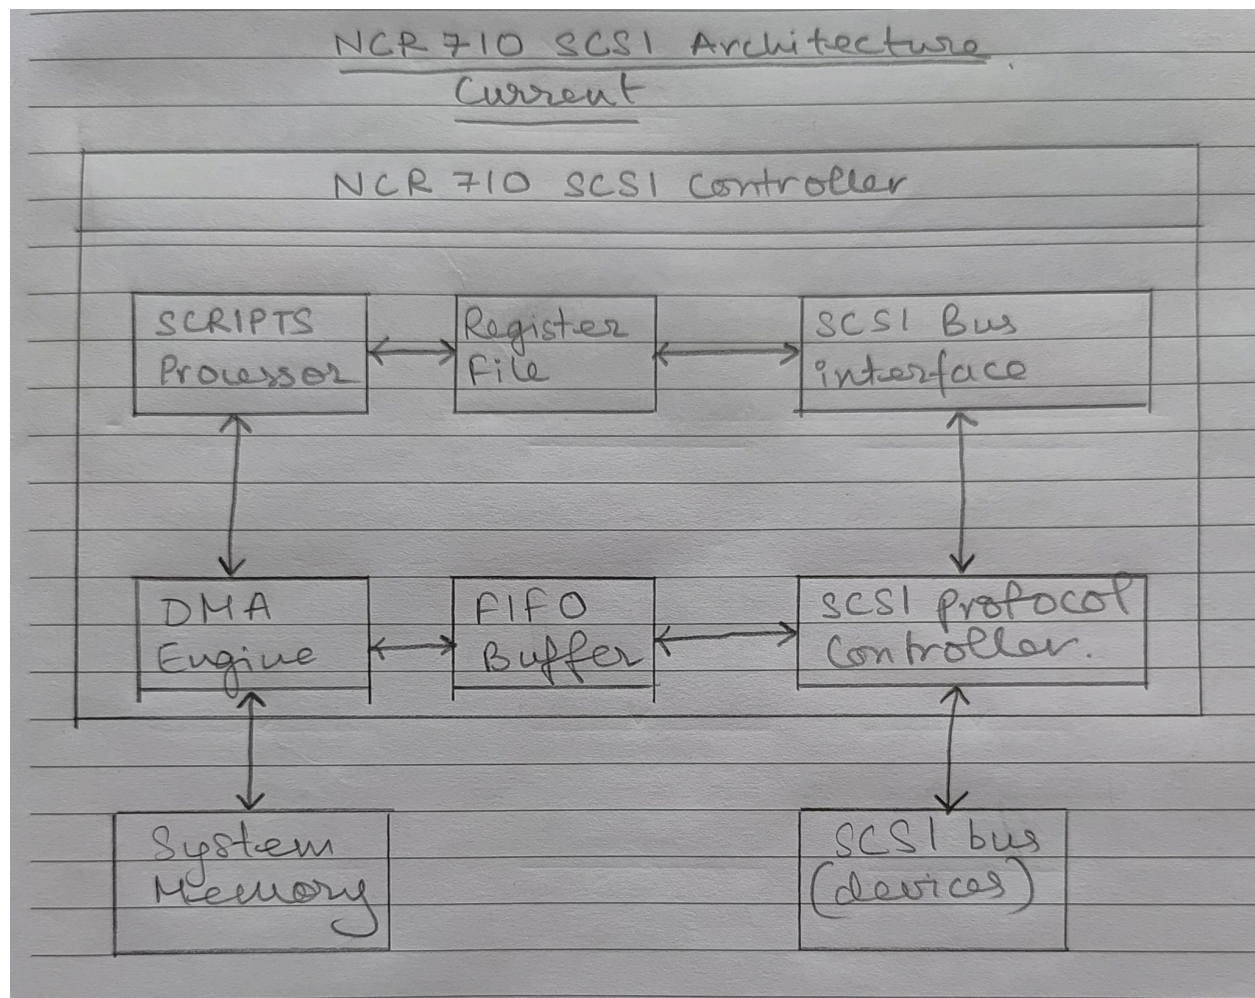 NCR 710 SCSI Architecture
Current
NCR 710 SCSI Controller
SCRIPTS
Processor
Register
File
SCSI Bus
interface
DMA
Engine
FIFO
Buffer
SCSI protocol
Controller.
System
Memory
SCSI bus
(devices)